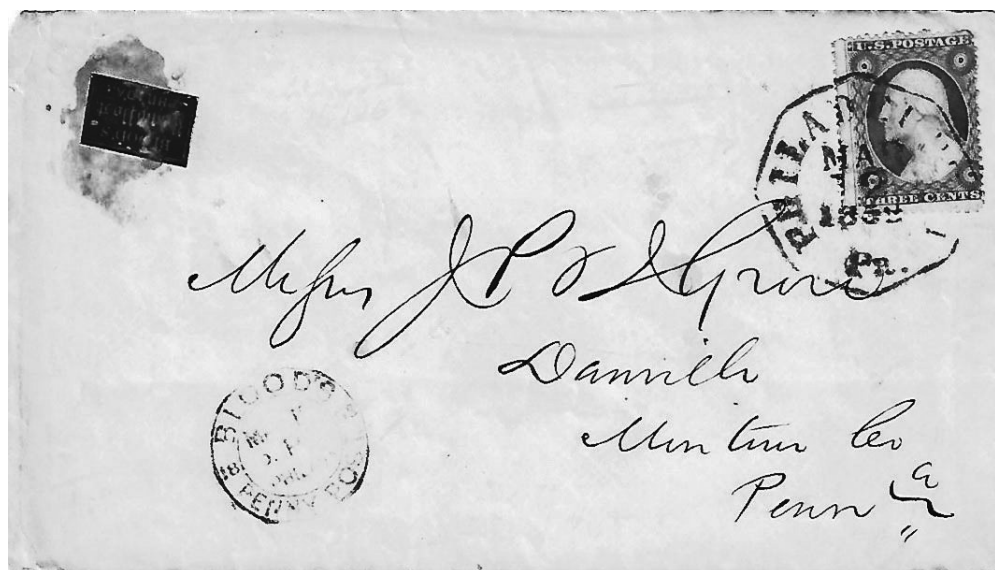 U.S. POSTAGE
THREE CENTS
PHILA
Pa.
Messrs J P & J Grove
Danville
Montour Co
Penna
BLOOD'S
PENNY POST